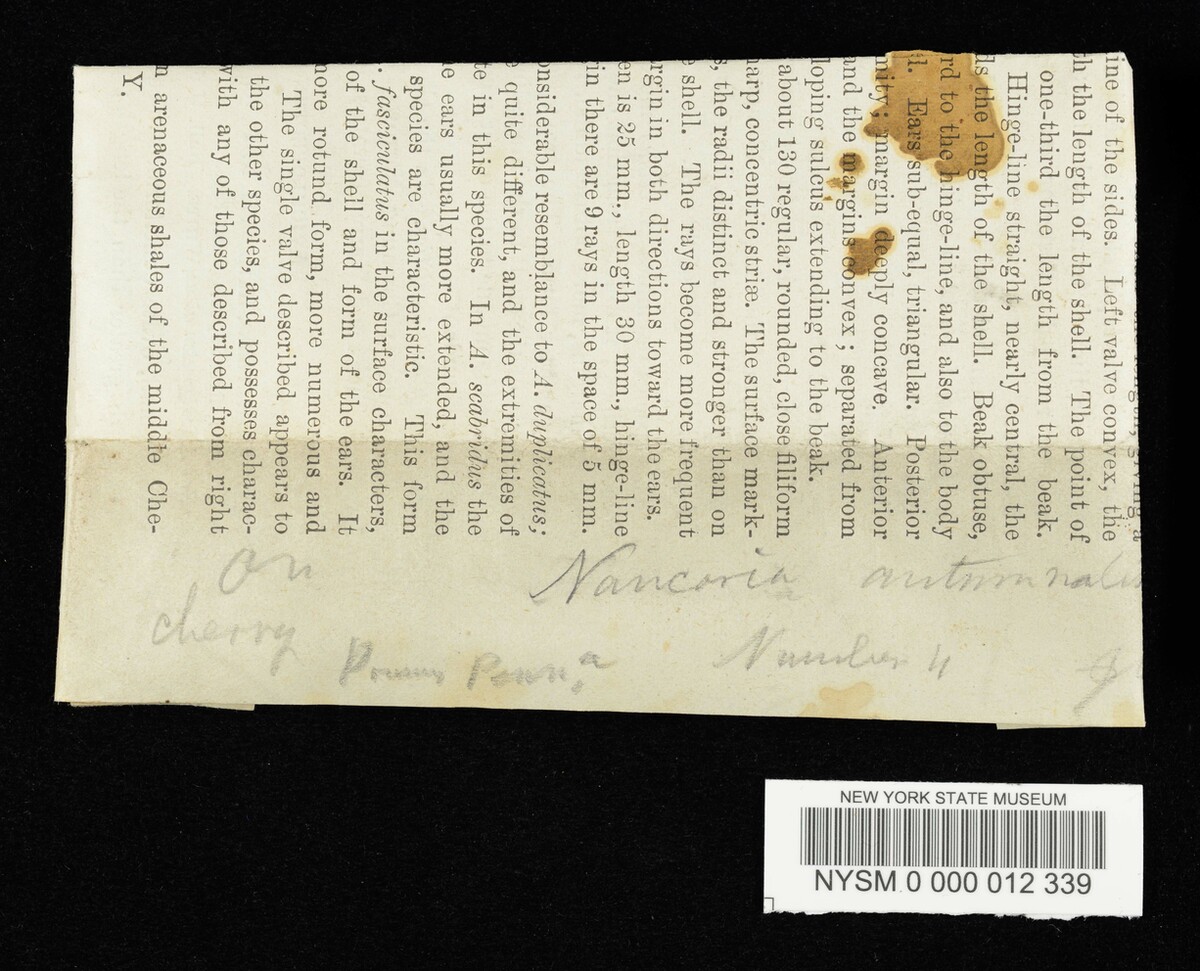 ine of the sides. Left valve convex, the
h the length of the shell. The point of
one-third the length from the beak.
Hinge-line straight, nearly central, the
ds the length of the shell. Beak obtuse,
rd to the hinge-line, and also to the body
l. Ears sub-equal, triangular. Posterior
mity; margin deeply concave. Anterior
and the margins convex; separated from
loping sulcus extending to the beak.
about 130 regular, rounded, close filiform
harp, concentric striæ. The surface mark-
s, the radii distinct and stronger than on
e shell. The rays become more frequent
argin in both directions toward the ears.
en is 25 mm., length 30 mm., hinge-line
in there are 9 rays in the space of 5 mm.
onsiderable resemblance to A. duplicatus;
e quite different, and the extremities of
te in this species. In A. scabridus the
e ears usually more extended, and the
species are characteristic. This form
. fasciculatus in the surface characters,
of the shell and form of the ears. It
nore rotund form, more numerous and
The single valve described appears to
the other species, and possesses charac-
with any of those described from right
n arenaceous shales of the middle Che-
Y.
On Naucoria autumnalis
cherry Prunus Penn.a Number 4
NEW YORK STATE MUSEUM
NYSM 0 000 012 339